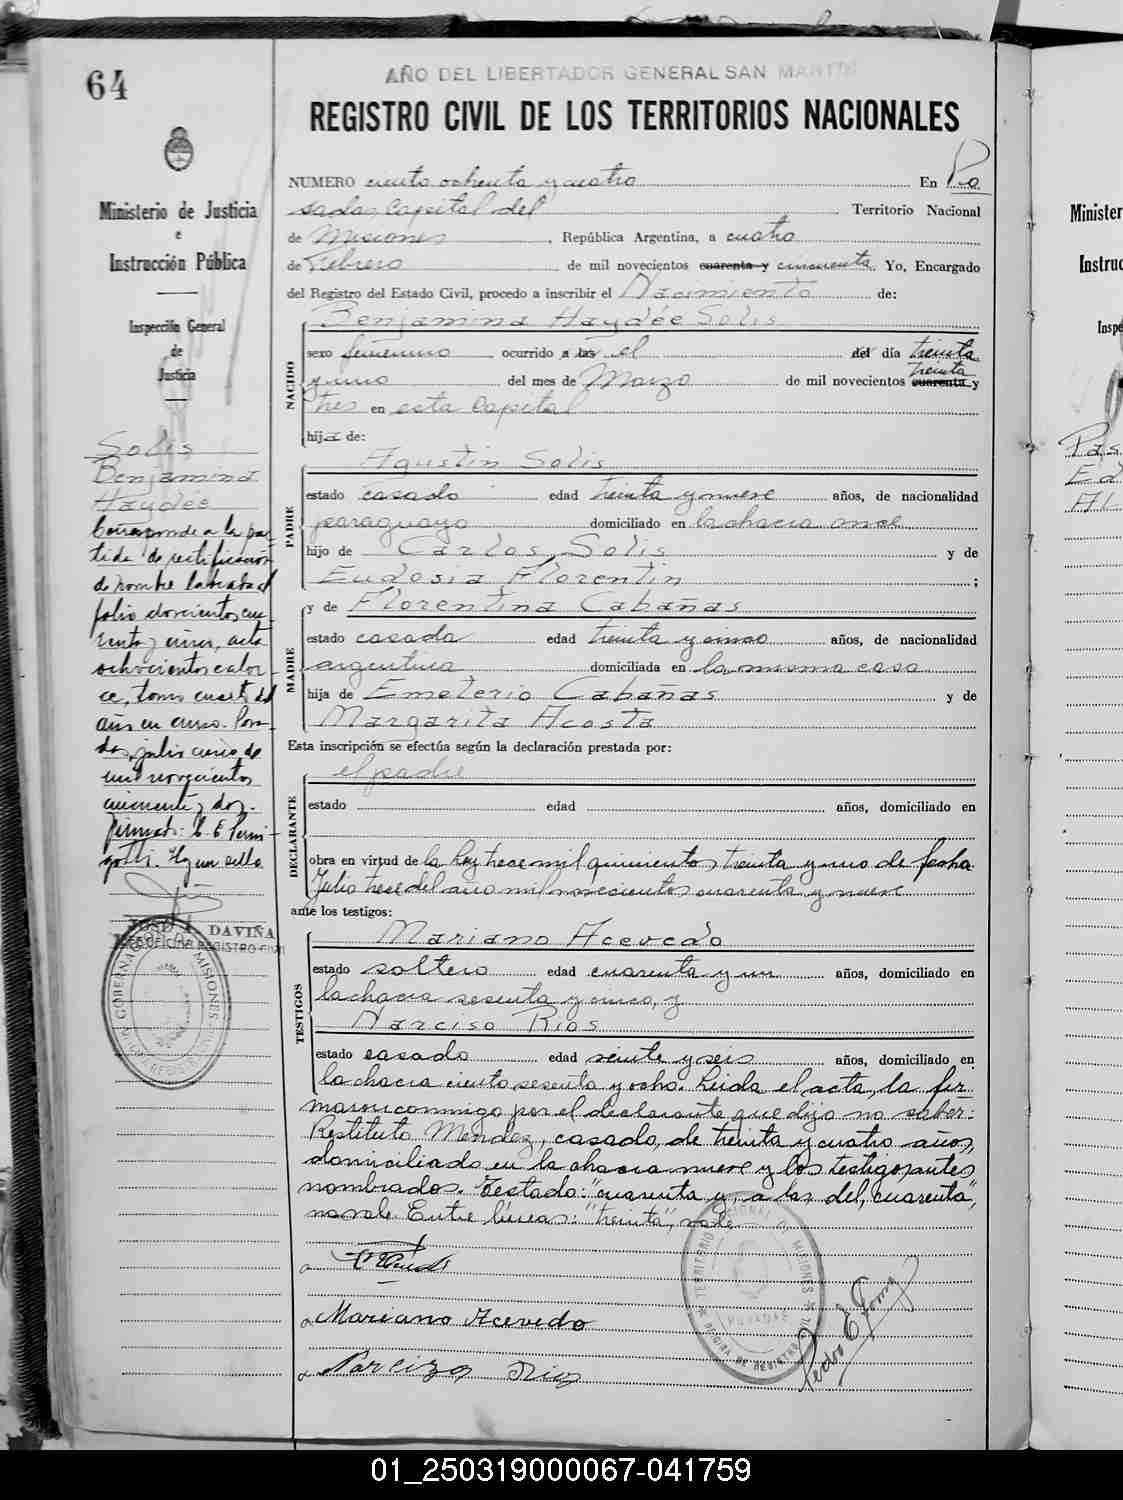 64
AÑO DEL LIBERTADOR GENERAL SAN MARTIN
REGISTRO CIVIL DE LOS TERRITORIOS NACIONALES
Ministerio de Justicia
e
Instrucción Pública
Inspección General
de
Justicia
NUMERO ciento ochenta y cuatro En Po
sadas, Capital del Territorio Nacional
de Misiones, República Argentina, a cuatro
de Febrero de mil novecientos cuarenta y cincuenta. Yo, Encargado
del Registro del Estado Civil, procedo a inscribir el Nacimiento de:
NACIDO
Benjamina Haydée Solis
sexo femenino ocurrido a las el del día treinta
treinta
y uno del mes de Marzo de mil novecientos cuarenta y
tres en esta Capital
hija de:
PADRE
Agustin Solis
estado casado edad treinta y nueve años, de nacionalidad
paraguayo domiciliado en la chacra once
hijo de Carlos Solis y de
Eudosia Florentin ;
MADRE
y de Florentina Cabañas
estado casada edad treinta y cinco años, de nacionalidad
argentina domiciliada en la misma casa
hija de Emeterio Cabañas y de
Margarita Acosta
Esta inscripción se efectúa según la declaración prestada por:
DECLARANTE
el padre
estado edad años, domiciliado en
obra en virtud de la Ley trece mil quinientos treinta y uno de fecha
Julio trece del año mil novecientos cuarenta y nueve
ante los testigos:
TESTIGOS
Mariano Acevedo
estado soltero edad cuarenta y un años, domiciliado en
la chacra sesenta y cinco, y
Narciso Rios
estado casado edad veinte y seis años, domiciliado en
la chacra ciento sesenta y ocho. Leida el acta, la fir
maron conmigo por el declarante que dijo no saber:
Restituto Mendez, casado, de treinta y cuatro años,
domiciliado en la chacra nueve y los testigos antes
nombrados. Testado: "cuarenta y, a las del, cuarenta",
no vale. Entre líneas: "treinta", vale
Mariano Acevedo
Narcizo Rios
Pedro E
Solis
Benjamina
Haydée
Corresponde a la par
tida de rectificación
de nombre labrada al
folio doscientos cua
renta y cinco, acta
ochocientos cator
ce, tomo cuarto del
año en curso. Posa
das, julio cinco de
mil novecientos
cincuenta y dos.
firmado:
Hay un sello
JOSE A. DAVIÑA
REGISTRO CIVIL
GOBERNACION MISIONES
TERRITORIO NACIONAL D. MISIONES
POSADAS
Minister
Instruc
Inspe
01_250319000067-041759